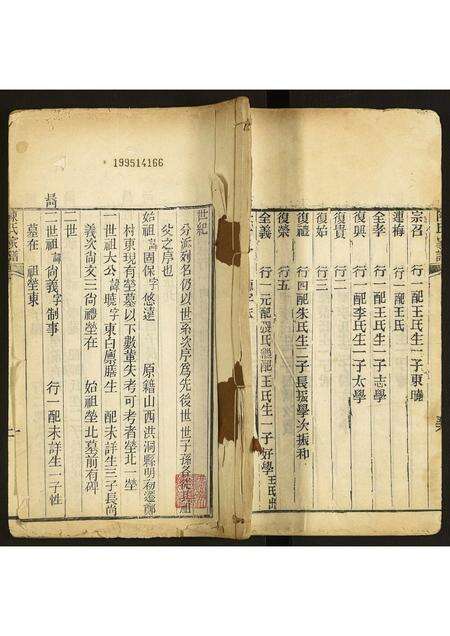 199514166
宗召　行一配王氏生一子東曉
連梅　行一配王氏
全孝　行二配王氏生一子志學
復興　行一配李氏生一子太學
復貴　行二
復始　行三
復禮　行四配朱氏生二子長振學次振和
復榮　行五
全義　行一元配 氏繼配王氏生一子好學王氏出
世紀
分派列名仍以世系次序為先後世世子孫各從其祖
父之序也
始祖諱固保字悠遠　原籍山西洪洞縣明初遷
村東現有塋墓以下數輩失考可考者塋北一塋
一世祖大公諱曉字東白廩膳生　配未詳生三子長尚
義次尚文三尚禮塋在　始祖塋北墓前有碑
二世
二世祖諱尚義字制事　行一配未詳生一子性
墓在　祖塋東
陳氏家譜